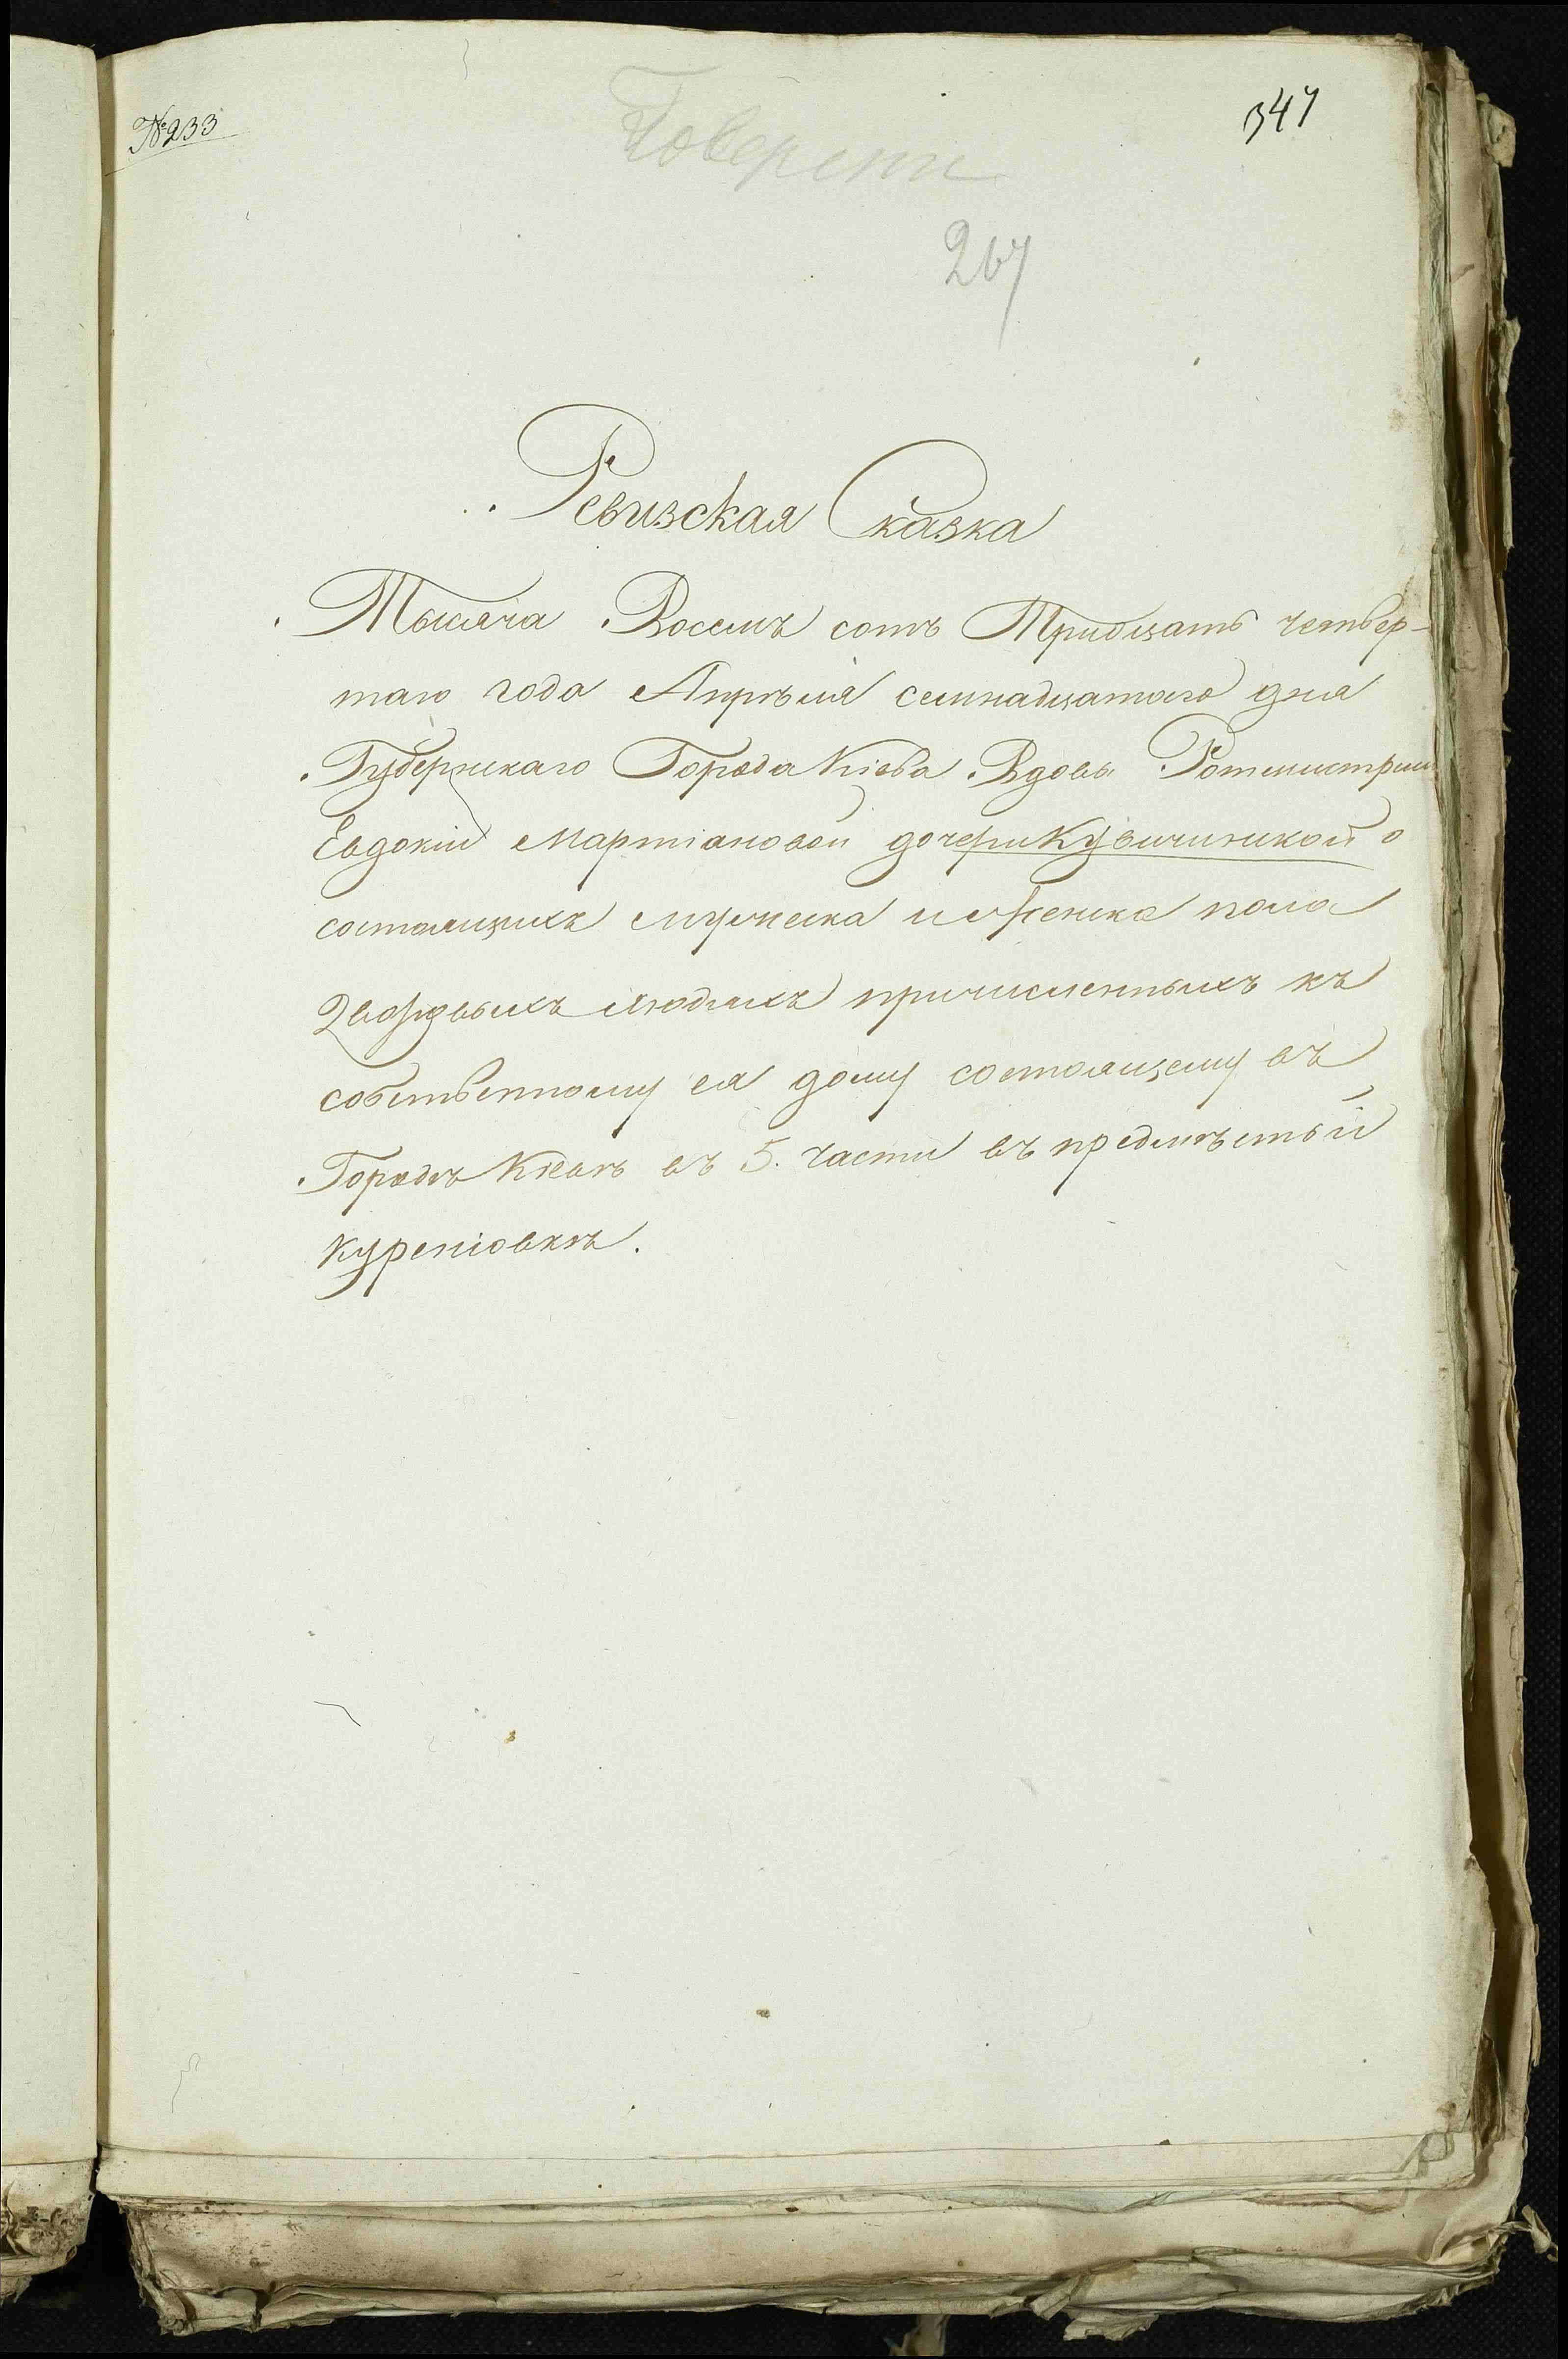 №233
347
Поверети
267
Ревизская Сказка
Тысяча Восемъ сотъ Тридцать четвер-
таго года Апрѣля семнадцатого дня
Губернскаго Города Кіева Вдовы Ротмистрши
Евдокіи Мартіановой дочери Кузвичинской о
состоящихъ мужеска и женска пола
Дворовыхъ людяхъ причисленныхъ къ
собственному ея дому состоящему въ
Городѣ Кіевѣ въ 5. части въ предмѣстьи
Куреніовкѣ.